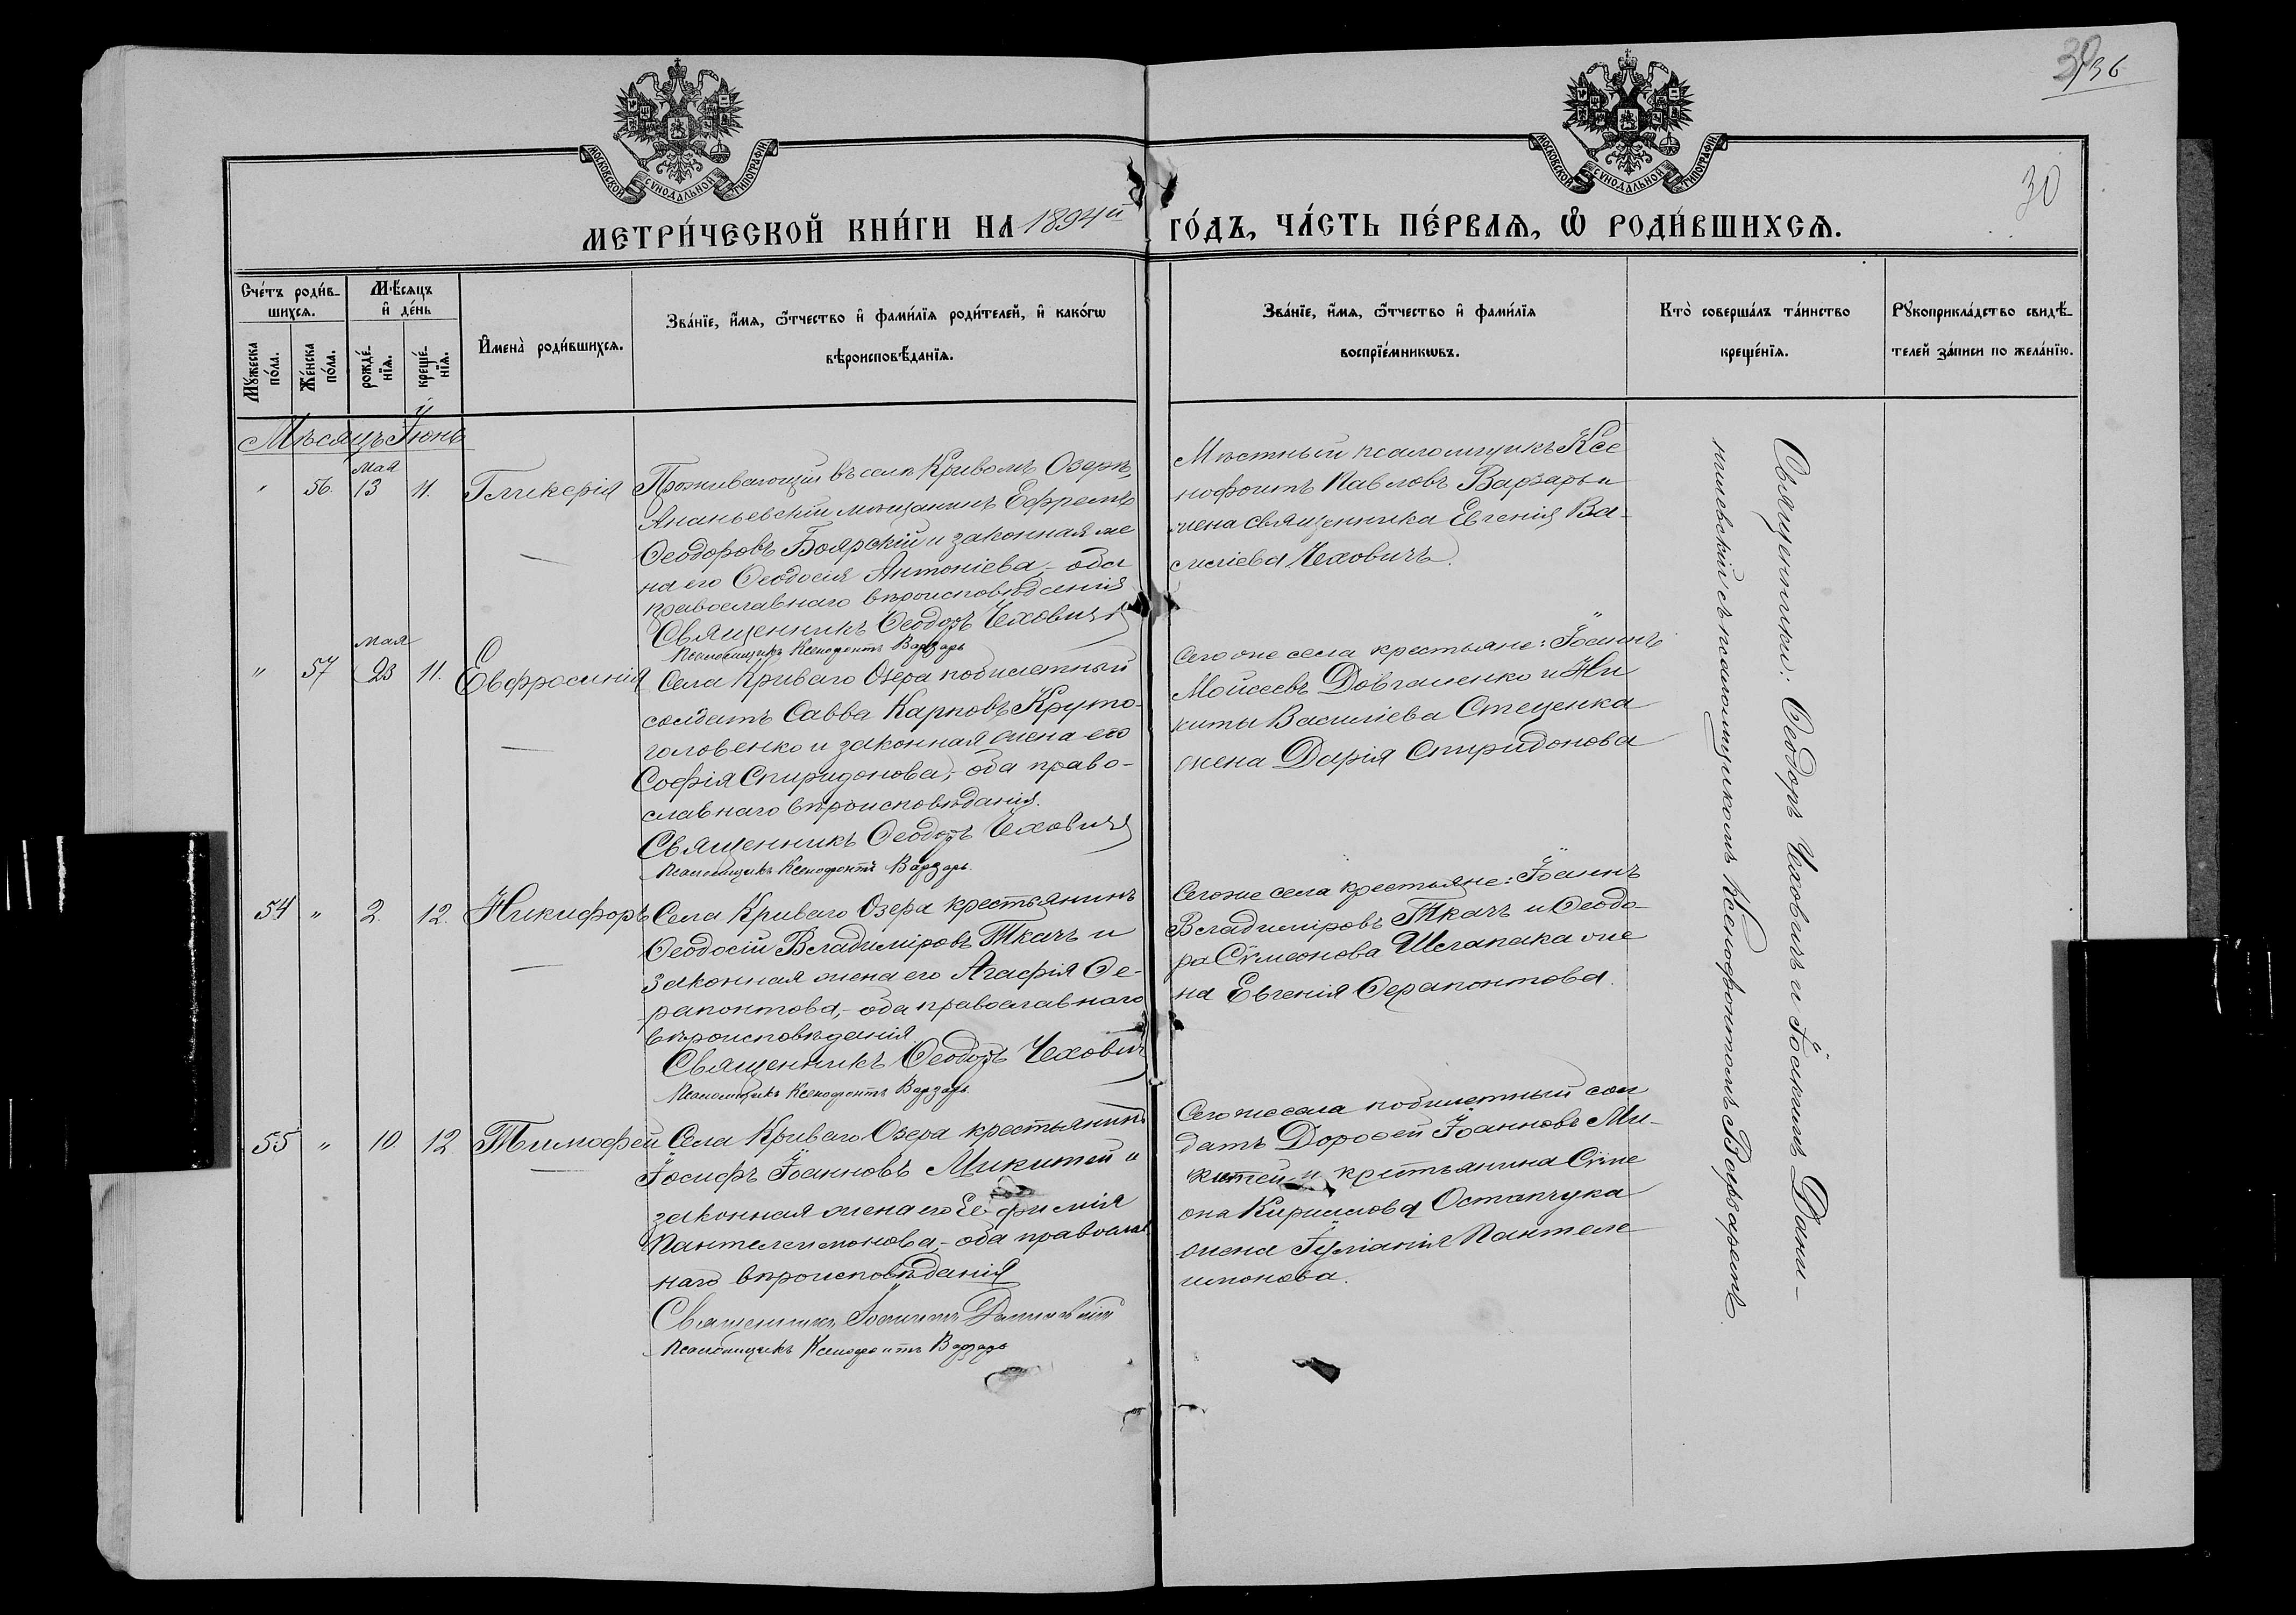 30/36
30
МОСКОВСКОЙ СУНОДАЛЬНОЙ ТИПОГРАФІИ
МОСКОВСКОЙ СУНОДАЛЬНОЙ ТИПОГРАФІИ
МЕТРИ́ЧЕСКОЙ КНИ́ГИ НА 1894й ГО́ДЪ, ЧА́СТЬ ПЕ́РВАѦ, Ѡ РОДИ́ВШИХСѦ.
Сче́тъ роди́в-
шихсѧ.
Му́жеска по́ла.
Же́нска по́ла.
Мѣ́сѧцъ
и҆ де́нь
рожде́-
нїѧ.
креще́-
нїѧ.
И҆мена̀ роди́вшихсѧ.
Зва́нїе, и҆́мѧ, ѻ҆́тчество и҆ фами́лїѧ роди́телей, и҆ како́гѡ
вѣроисповѣ́данїѧ.
Зва́нїе, и҆́мѧ, ѻ҆́тчество и҆ фами́лїѧ
воспрїе́мникѡвъ.
Кто̀ соверша́лъ та́инство
креще́нїѧ.
Рꙋкоприкла́дство свидѣ́-
телей за́писи по жела́нїю.
Мѣсяцъ Іюнь
" 56. мая 13 11. Гликерія
Проживающій въ селѣ Кривомъ Озерѣ,
Ананьевскій мѣщанинъ Ефремъ
Ѳеодоровъ Боярскій и законная же
на его Ѳеодосія Антоніева,- оба
православнаго вѣроисповѣданія
Священникъ Ѳеодоръ Чеховичъ
Псаломщикъ Ксенофонтъ Варзарь
Мѣстный псаломщикъ Ксе
нофонтъ Павловъ Варзарь и
жена священника Евгенія Ва-
силіева Чеховичъ.
" 57 мая 23 11. Евфросинія
Села Криваго Озера побилетный
солдатъ Савва Карповъ Круто-
головенко и законная жена его
Софія Спиридонова,- оба право-
славнаго вѣроисповѣданія.
Священникъ Ѳеодоръ Чеховичъ
Псаломщикъ Ксенофонтъ Варзарь.
Сего же села крестьяне: Іоаннъ
Моисеевъ Довгаленко и Ни
киты Василіева Стеценка
жена Дарія Спиридонова
54 " 2. 12. Никифоръ
Села Криваго Озера крестьянинъ
Ѳеодосій Владиміровъ Ткачъ и
законная жена его Агафія Ѳе-
рапонтова,- оба православнаго
вѣроисповѣданія
Священникъ Ѳеодоръ Чехович
Псаломщикъ Ксенофонтъ Варзарь.
Сего же села крестьяне: Іоаннъ
Владиміровъ Ткачъ и Ѳеодо-
ра Сѵмеонова Шелапака же
на Евгенія Ѳерапонтова.
55 " 10. 12 Тимофей
Села Криваго Озера крестьянинъ
Іосифъ Іоанновъ Микитей и
законная жена его Евфимія
Пантелеимонова,- оба православ
наго вѣроисповѣданія
Священникъ Іоакимъ Данилевскій
Псаломщикъ Ксенофонтъ Варзарь
Сего же села побилетный сол
датъ Дороѳей Іоанновъ Ми-
китей и крестьянина Сѵме
она Кириллова Остапчука
жена Іуліанія Пантеле
имонова.
Священники: Ѳеодоръ Чеховичъ и Іоакимъ Дани-
нилевскій съ псаломщикомъ Ксенофонтомъ Варзаремъ.